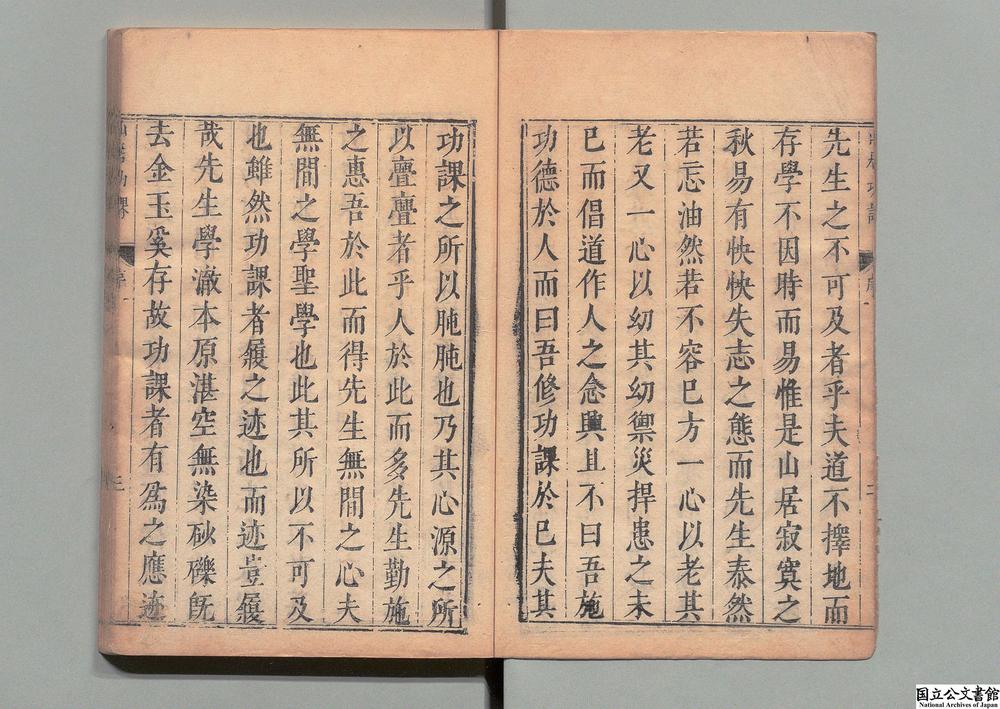 先生之不可及者乎夫道不擇地而
存學不因時而易惟是山居寂寞之
秋易有怏怏失志之態而先生泰然
若忘油然若不容已方一心以老其
老又一心以幼其幼禦災捍患之未
已而倡道作人之念興且不曰吾施
功德於人而曰吾修功課於已夫其
功課之所以肫肫也乃其心源之所
以亹亹者乎人於此而多先生勤施
之惠吾於此而得先生無間之心夫
無間之學聖學也此其所以不可及
也雖然功課者履之迹也而迹豈履
哉先生學澈本原湛空無染砂礫既
去金玉奚存故功課者有爲之應迹
序
二
序
三
国立公文書館
National Archives of Japan